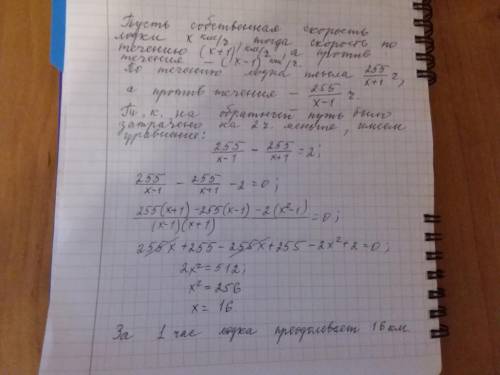 Пусть собственная скорость
лодки x км/ч, тогда скорость по
течению (x+1) км/ч, а против
течения – (x-1) км/ч.
По течению лодка плыла 255/(x+1) ч,
а против течения – 255/(x-1) ч.
Т. к. на обратный путь было
затрачено на 2 ч меньше, имеем
уравнение:
255/(x-1) - 255/(x+1) = 2;
255/(x-1) - 255/(x+1) - 2 = 0;
(255(x+1) - 255(x-1) - 2(x²-1))/((x-1)(x+1)) = 0;
255x + 255 - 255x + 255 - 2x² + 2 = 0;
2x² = 512;
x² = 256
x = 16
За 1 час лодка преодолевает 16 км